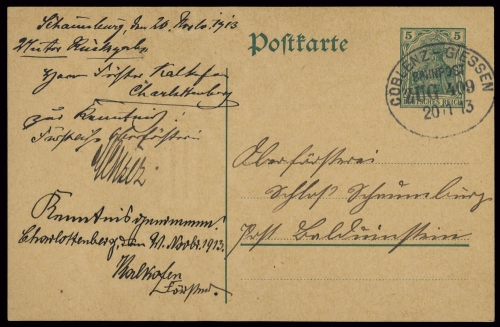 Schaumburg, den 20. Novbr. 1913.
Unter Rückgabe
Herrn Förster Kalkofen
Charlottenberg
zur Kenntnis!
Fürstliche Oberförsterei
Kenntnis genommen!
Charlottenberg, den 21. Novbr. 1913.
Kalkofen
Förster.
Postkarte
5 5
DEUTSCHES REICH
COBLENZ - GIESSEN
BAHNPOST
ZUG 409
20 11 13
Oberförsterei
Schloß Schaumburg
Post Balduinstein